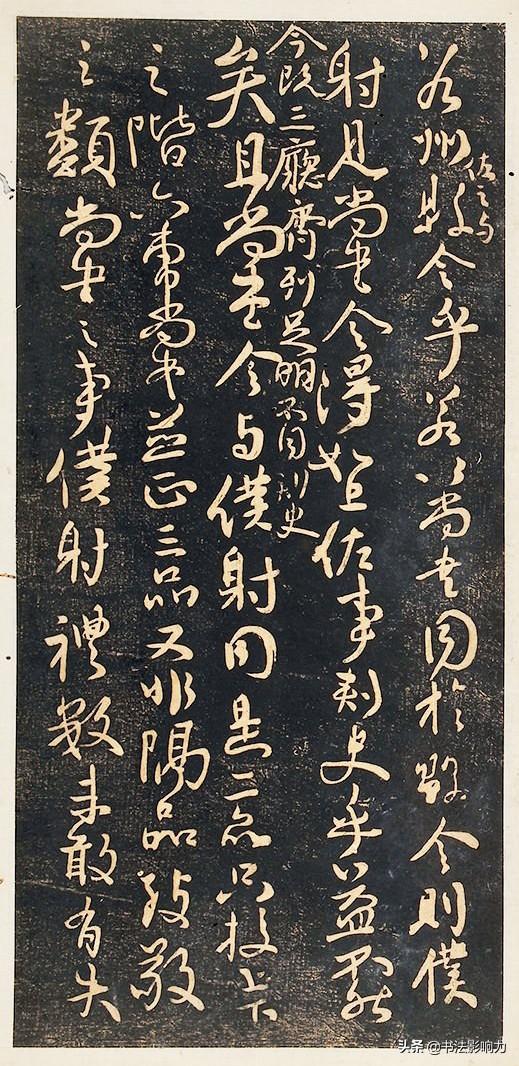 若州佐之与縣令乎若以尚書同於縣令則僕
射見尚書令得如上佐事刺史乎益不然
今既三廳齊列足明不同刺史
矣且尚書令与僕射同是二品只校上下
之階六曹尚書並正三品又非隔品致敬
之類尚書之事僕射禮數未敢有失
头条 @书法影响力